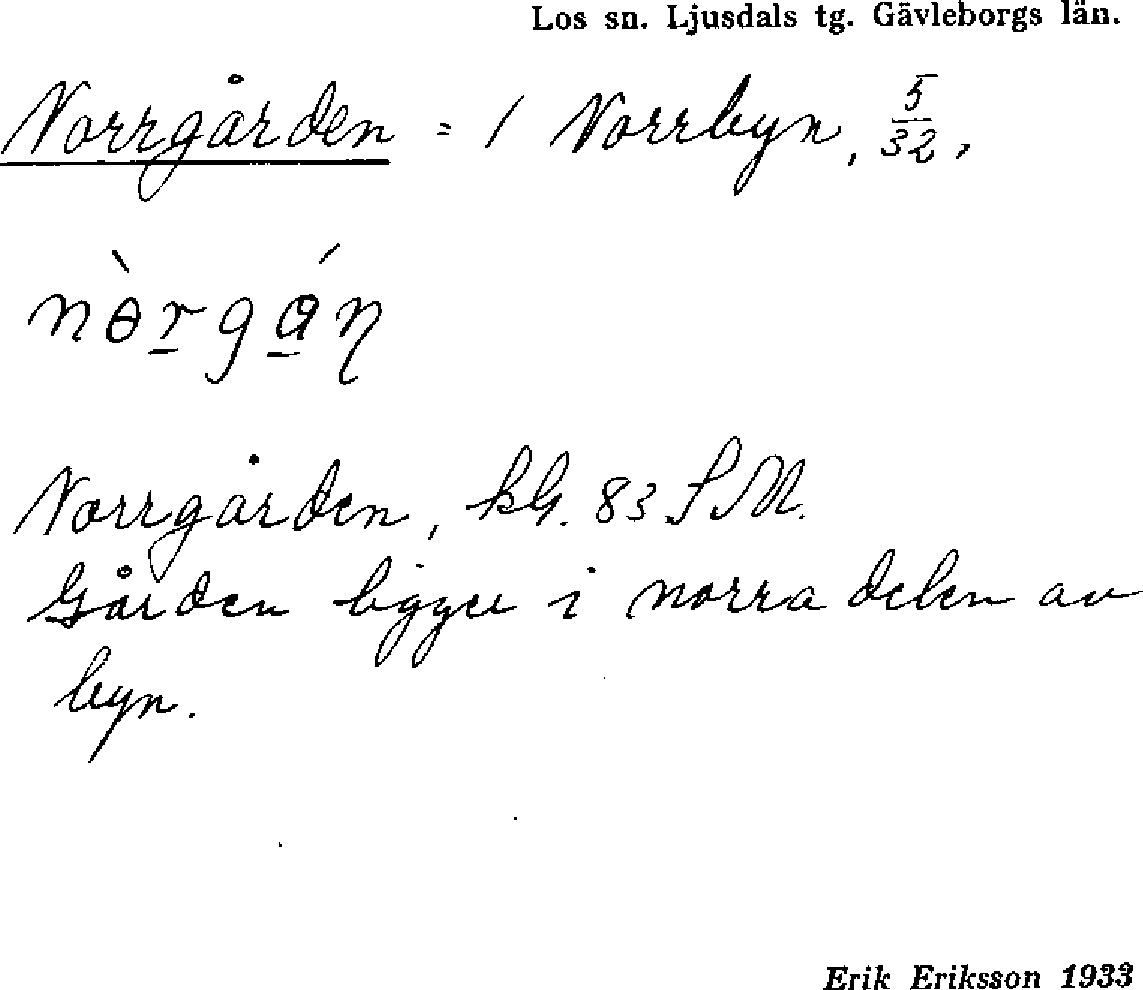 Los sn. Ljusdals tg. Gävleborgs län.
Norrgården = 1 Norrbyn, 5/32,
nòrgán
Norrgården, kG. 83 SM.
Gården ligger i norra delen av
byn.
Erik Eriksson 1933